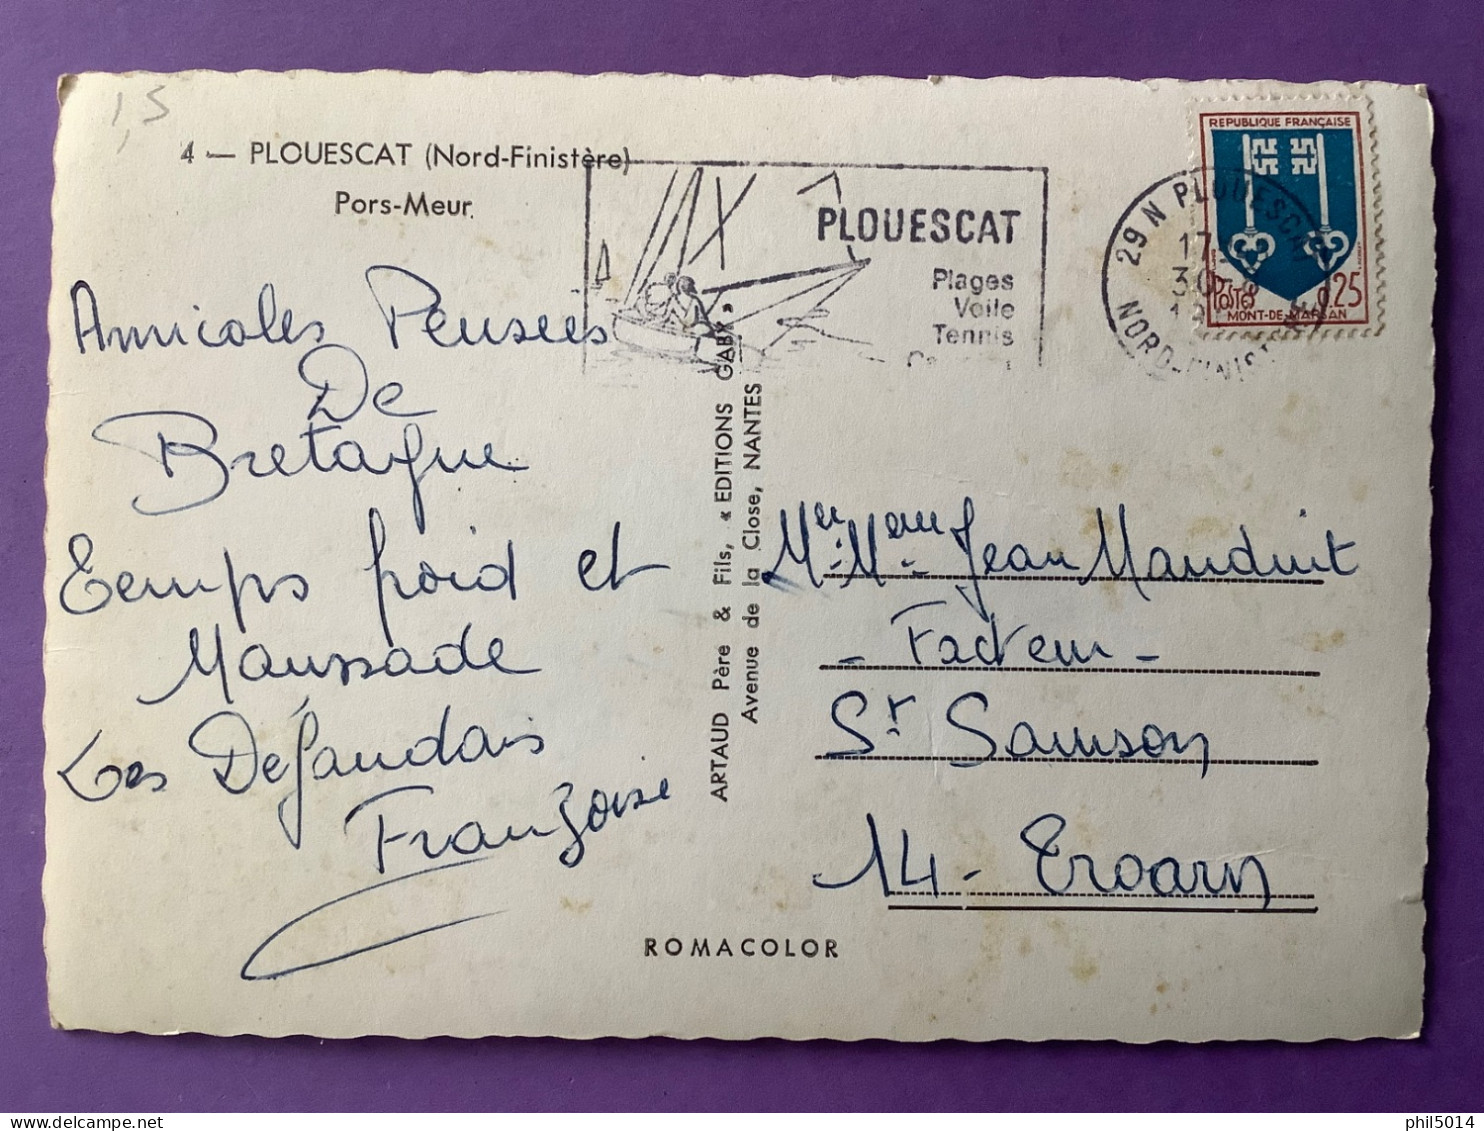 1,5
4 — PLOUESCAT (Nord-Finistère)
Pors-Meur
PLOUESCAT
Plages
Voile
Tennis
29 N PLOUESCAT
17
30
NORD-FINISTERE
REPUBLIQUE FRANÇAISE
POSTES 0,25
MONT-DE-MARSAN
Amicales Pensées
De
Bretagne
Temps froid et
Maussade
Les Dejaudais
Françoise
ARTAUD Père & Fils, « EDITIONS GABY »
Avenue de la Close, NANTES
Mr. Mme Jean Mauduit
- Facteur -
St Samson
14 - Troarn
ROMACOLOR
phil5014